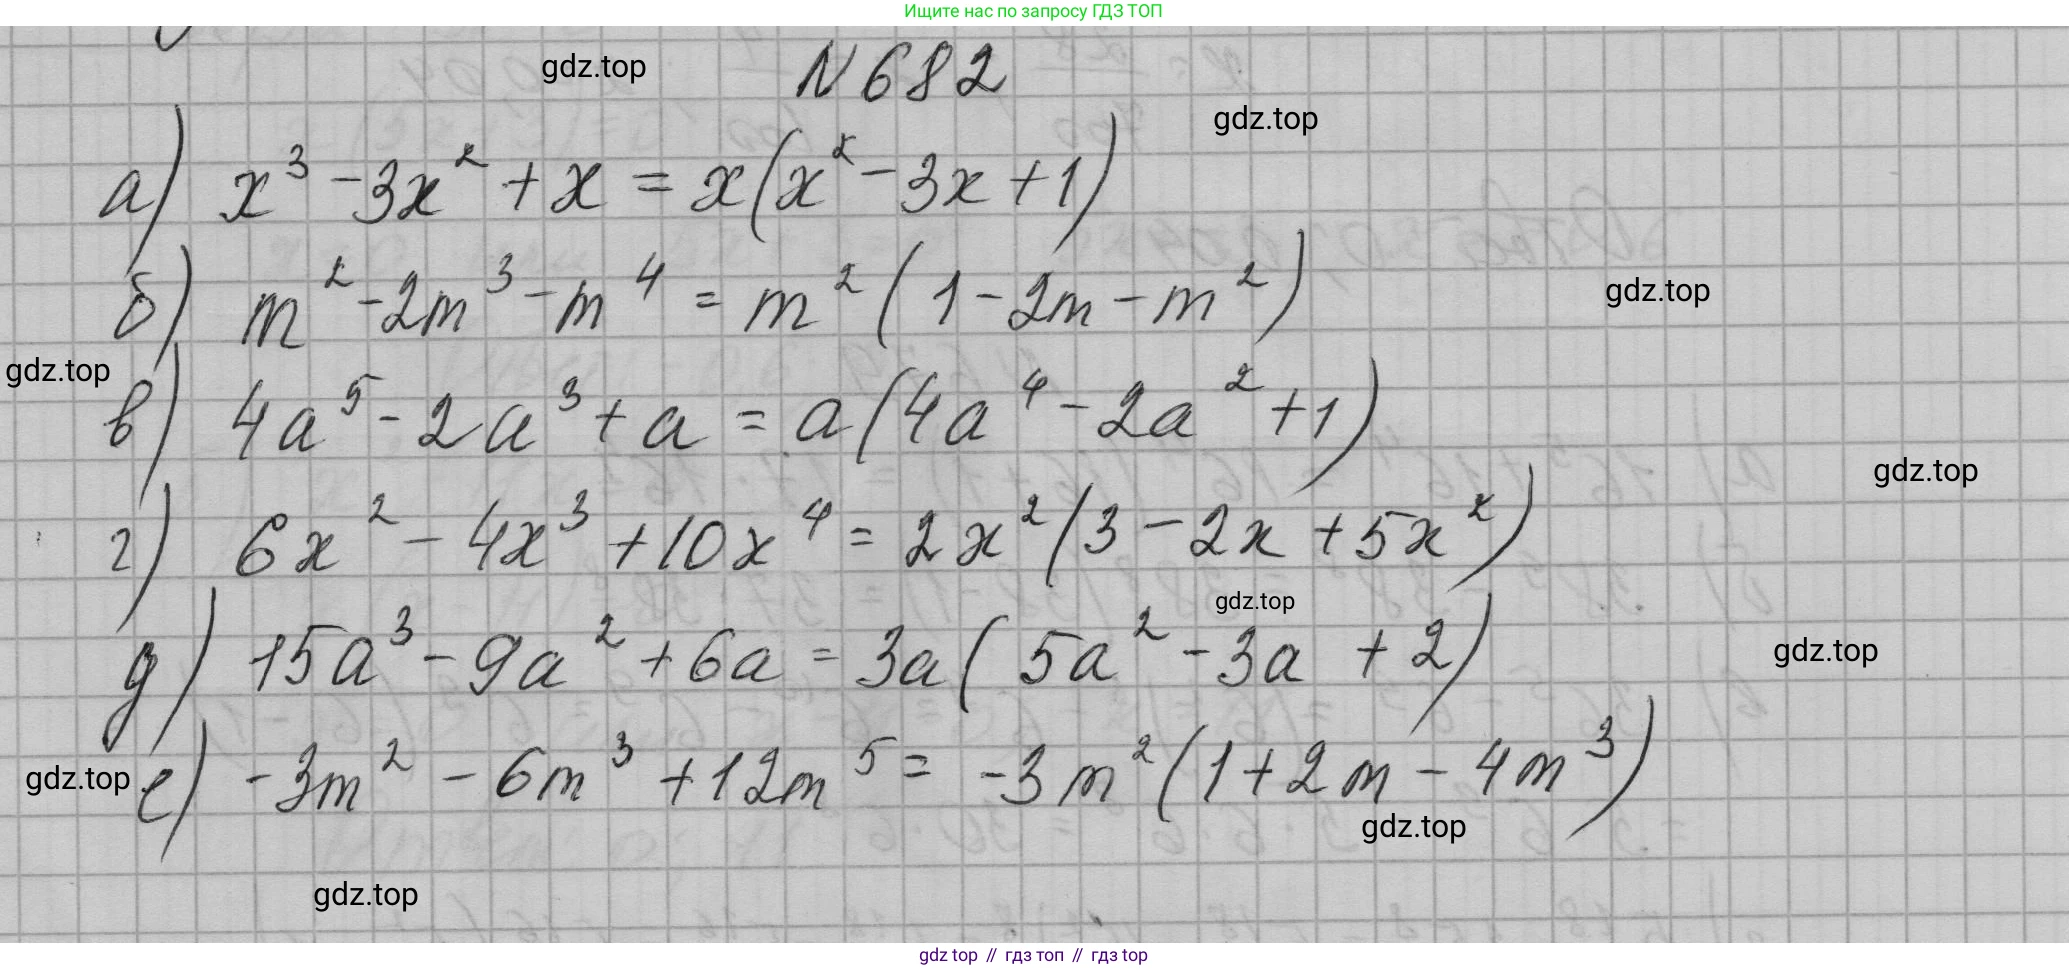 Ищите нас по запросу ГДЗ ТОП
N 682
gdz.top
gdz.top
а) x³ - 3x² + x = x(x² - 3x + 1)
б) m² - 2m³ - m⁴ = m² (1 - 2m - m²)
gdz.top
gdz.top
в) 4a⁵ - 2a³ + a = a(4a⁴ - 2a² + 1)
gdz.top
г) 6x² - 4x³ + 10x⁴ = 2x² (3 - 2x + 5x²)
gdz.top
д) 15a³ - 9a² + 6a = 3a (5a² - 3a + 2)
gdz.top
е) -3m² - 6m³ + 12m⁵ = -3m² (1 + 2m - 4m³)
gdz.top
gdz.top
gdz.top
gdz top // гдз топ // гдз top